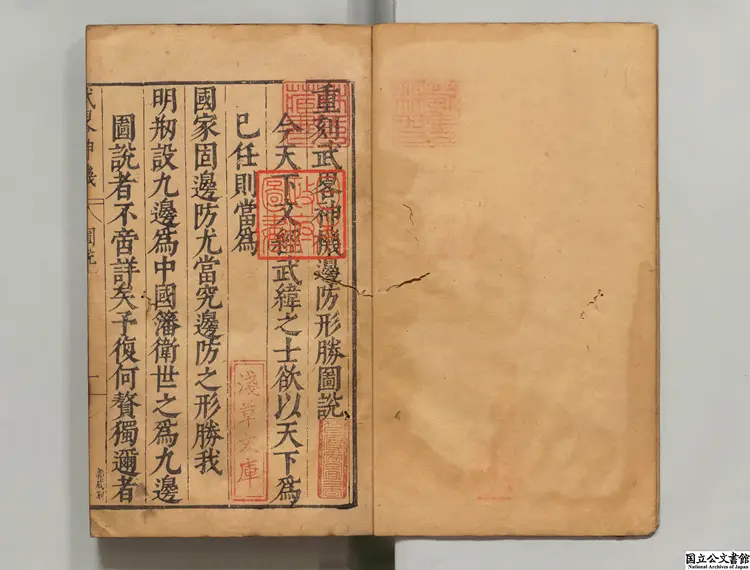 重刻武畧神機邊防形勝圖說
今天下文經武緯之士欲以天下爲
已任則當爲
國家固邊防尤當究邊防之形勝我
明剏設九邊爲中國籓衛世之爲九邊
圖說者不啻詳矣予復何贅獨邇者
武畧神機
圖說
淺草文庫
国立公文書館
National Archives of Japan